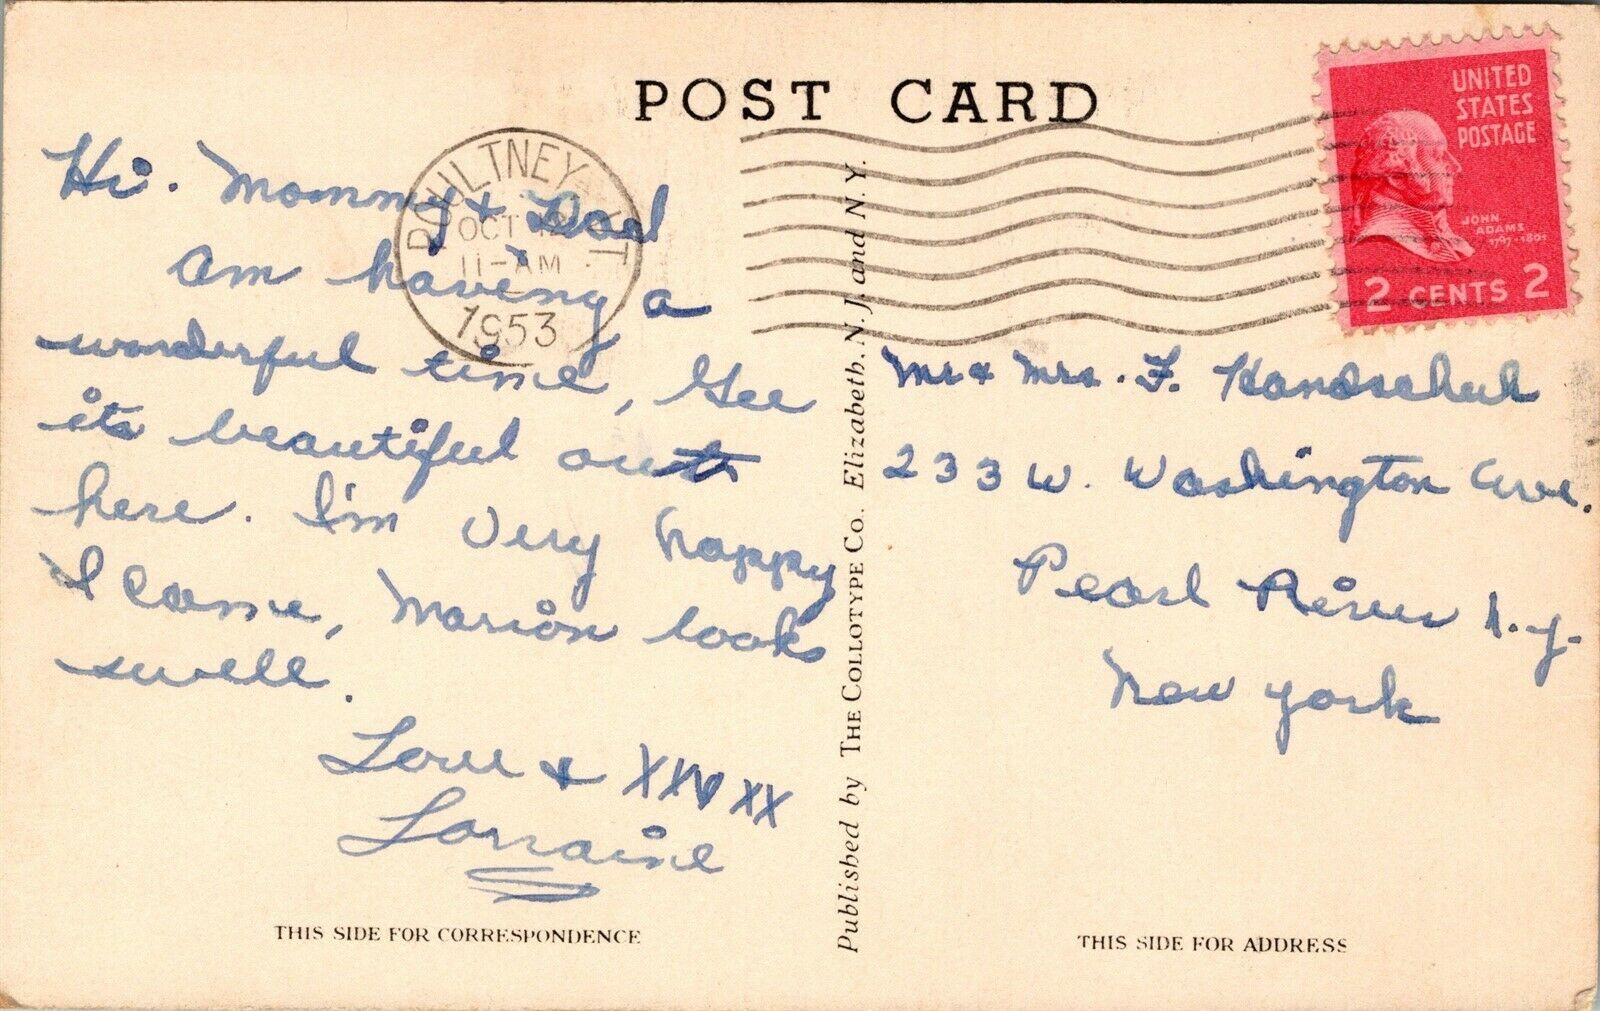 POST CARD
POULTNEY
OCT 12
11-AM
1953
UNITED
STATES
POSTAGE
JOHN
ADAMS
1797-1801
2 CENTS 2
Hi. Mommy & Dad
Am having a
wonderful time, Gee
its beautiful out
here. I'm very happy
I came, Marion looks
swell.
Love & XXXXX
Lorraine
THIS SIDE FOR CORRESPONDENCE
Published by THE COLLOTYPE CO. Elizabeth, N. J. and N. Y.
Mr & Mrs. F. Handschuh
233 W. Washington Ave.
Pearl River N.Y.
New York
THIS SIDE FOR ADDRESS